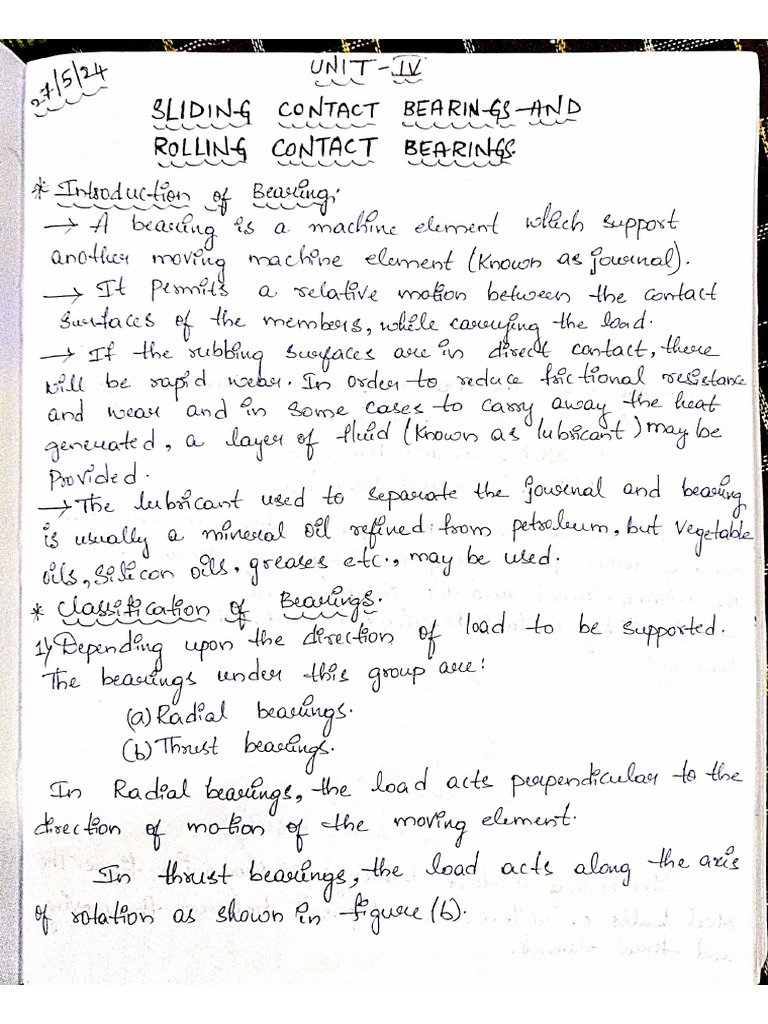 27/5/24
UNIT-IV
SLIDING CONTACT BEARINGS AND
ROLLING CONTACT BEARINGS
* Introduction of Bearing:
→ A bearing is a machine element which support
another moving machine element (known as journal).
→ It permits a relative motion between the contact
surfaces of the members, while carrying the load.
→ If the rubbing surfaces are in direct contact, there
will be rapid wear. In order to reduce frictional resistance
and wear and in some cases to carry away the heat
generated, a layer of fluid (known as lubricant) may be
Provided.
→ The lubricant used to separate the journal and bearing
is usually a mineral oil refined from petroleum, but vegetable
oils, Silicon oils, greases etc., may be used.
* Classification of Bearings.
1) Depending upon the direction of load to be supported.
The bearings under this group are:
(a) Radial bearings.
(b) Thrust bearings.
In Radial bearings, the load acts perpendicular to the
direction of motion of the moving element.
In thrust bearings, the load acts along the axis
of rotation as shown in figure (b).